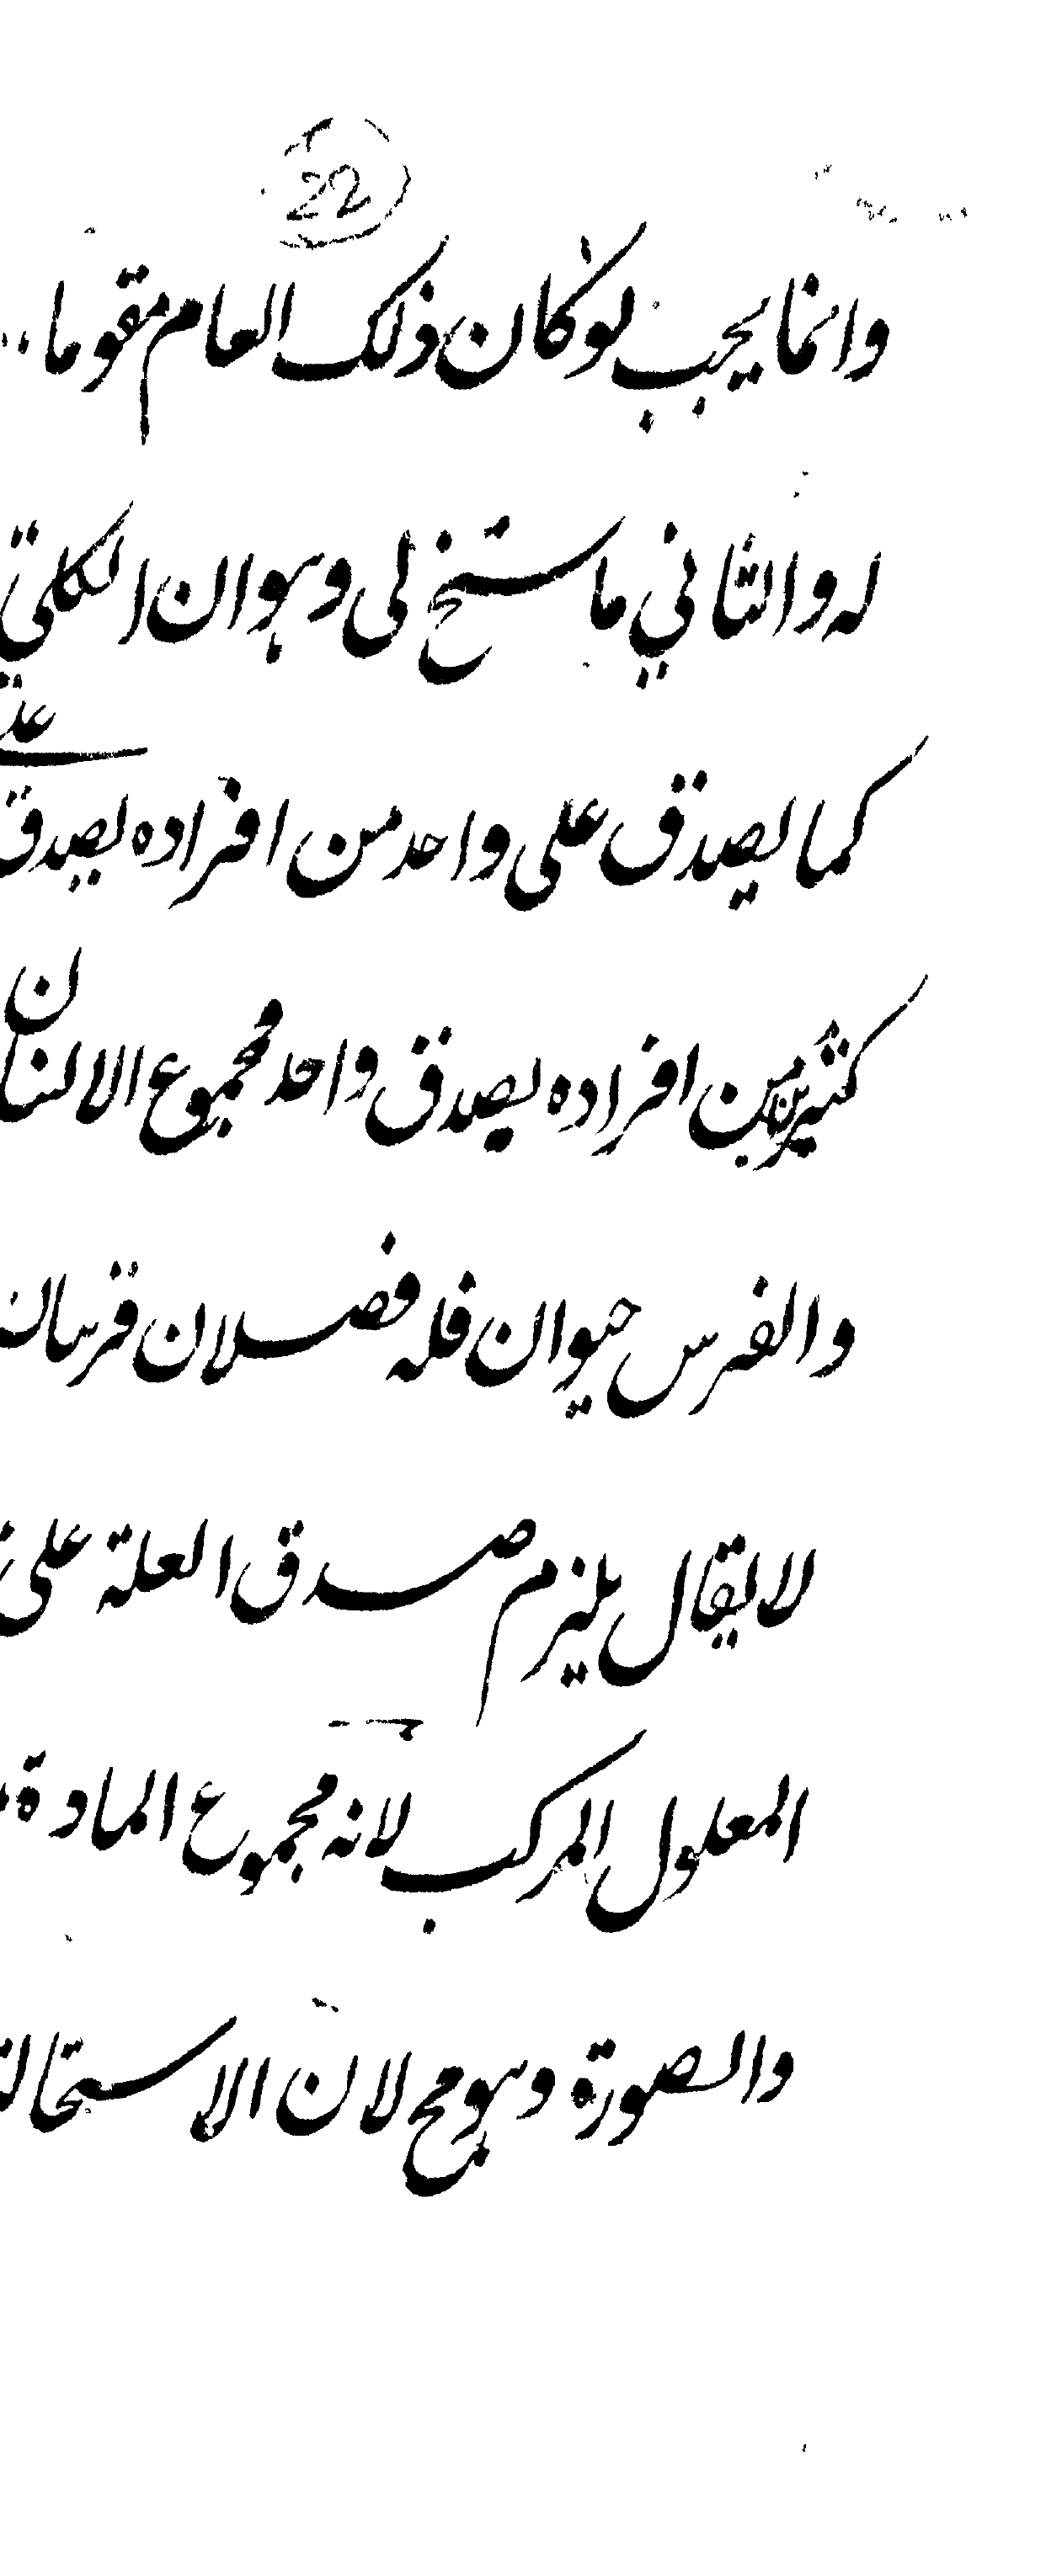 22
وانما يجب لو كان ذلك العام مقوما
له والثاني ما سنخ لى وهو ان الكلى
كما يصدق على واحد من افراده يصدق
على
كثيرين من افراده يصدق واحد مجموع الانسان
والفرس حيوان فله فصلان قريبان
لا يقال يلزم صدق العلة على
المعلول المركب لانه مجموع المادة
والصورة وهو مح لان الاستحالة